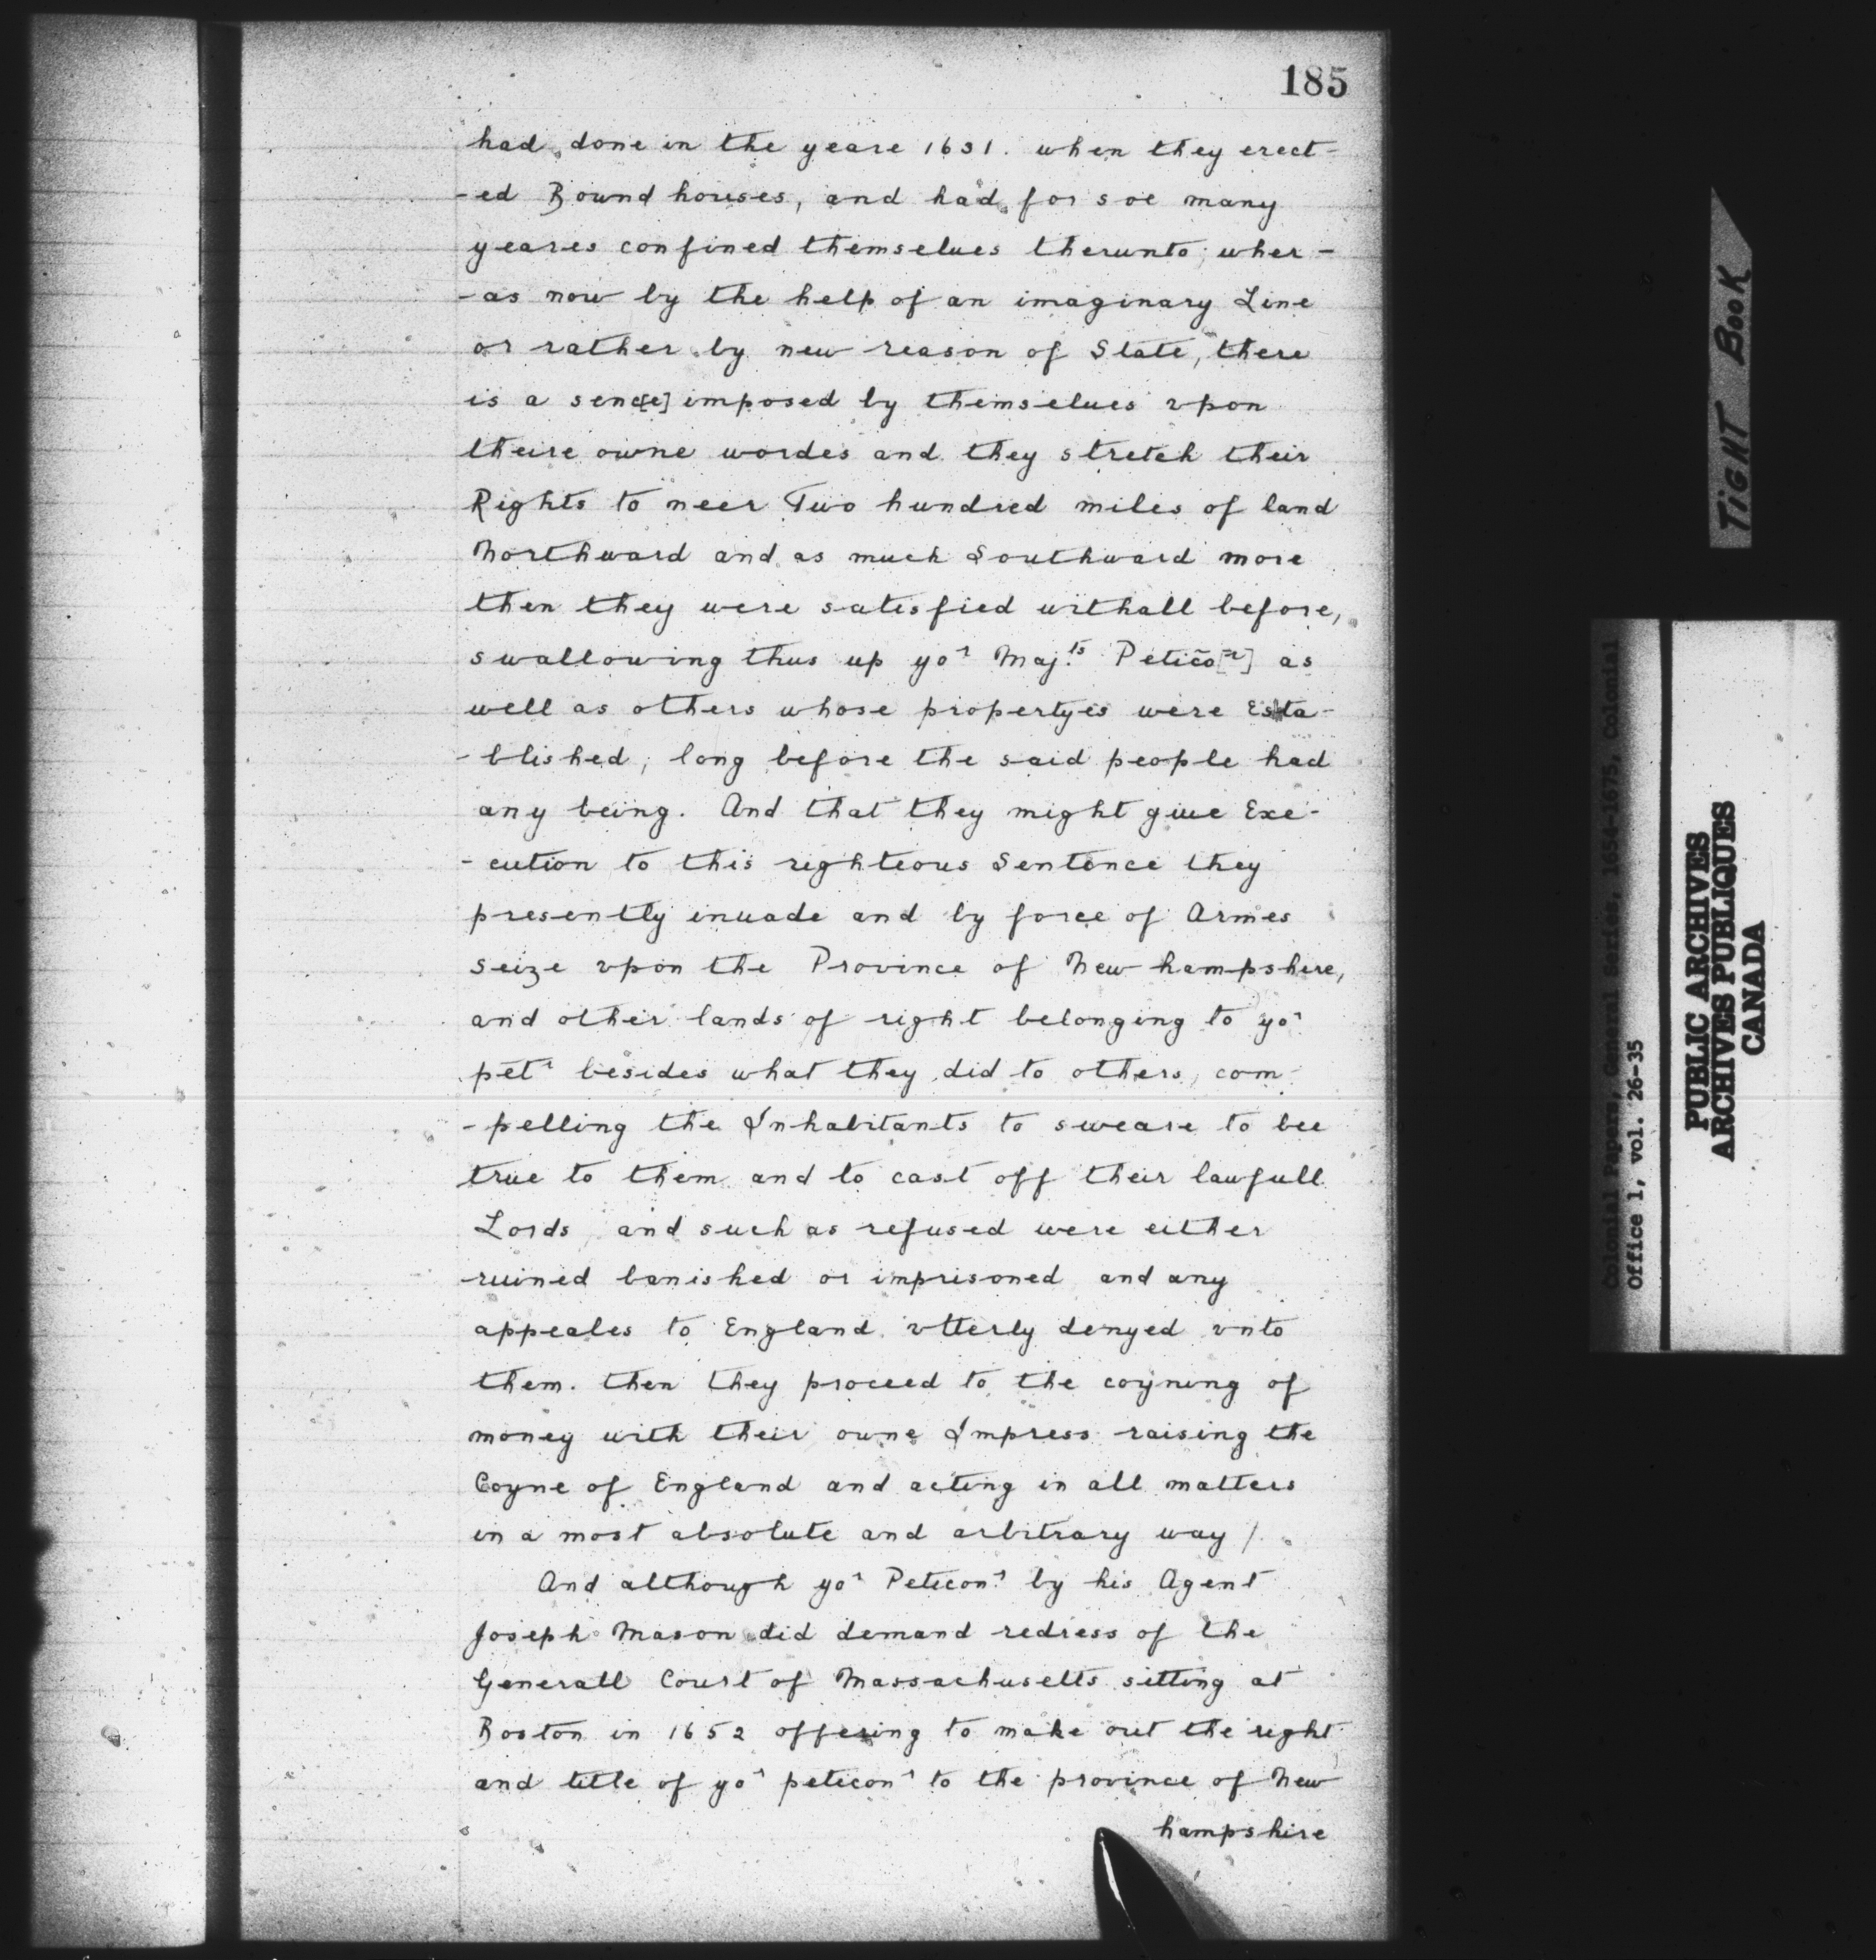 185
had done in the yeare 1631. when they erect-
-ed Bound houses, and had for soe many
yeares confined themselues therunto; wher-
-as now by the help of an imaginary Line
or rather by new reason of State, there
is a senc[e] imposed by themselues vpon
theire owne wordes and they stretch their
Rights to neer Two hundred miles of land
Northward and as much Southward more
then they were satisfied withall before,
swallowing thus up yoʳ Maj.ᵗˢ Peticõ[ʳ] as
well as others whose propertyes were Esta-
-blished, long before the said people had
any being. And that they might giue Exe-
-cution to this righteous Sentence they
presently inuade and by force of Armes
seize vpon the Province of New hampshire,
and other lands of right belonging to yoʳ
petʳ besides what they did to others, com-
-pelling the Inhabitants to sweare to bee
true to them and to cast off their lawfull
Lords, and such as refused were either
ruined banished or imprisoned and any
appeales to England vtterly denyed vnto
them. then they proceed to the coyning of
money with their owne Impress raising the
Coyne of England and acting in all matters
in a most absolute and arbitrary way /.
And although yoʳ Peticon.ʳ by his Agent
Joseph Mason did demand redress of the
Generall Court of Massachusetts sitting at
Boston in 1652 offering to make out the right
and title of yoʳ peticonʳ to the province of New
hampshire
TIGHT BOOK
Colonial Papers, General Series, 1654-1675, Colonial
Office 1, vol. 26-35
PUBLIC ARCHIVES
ARCHIVES PUBLIQUES
CANADA